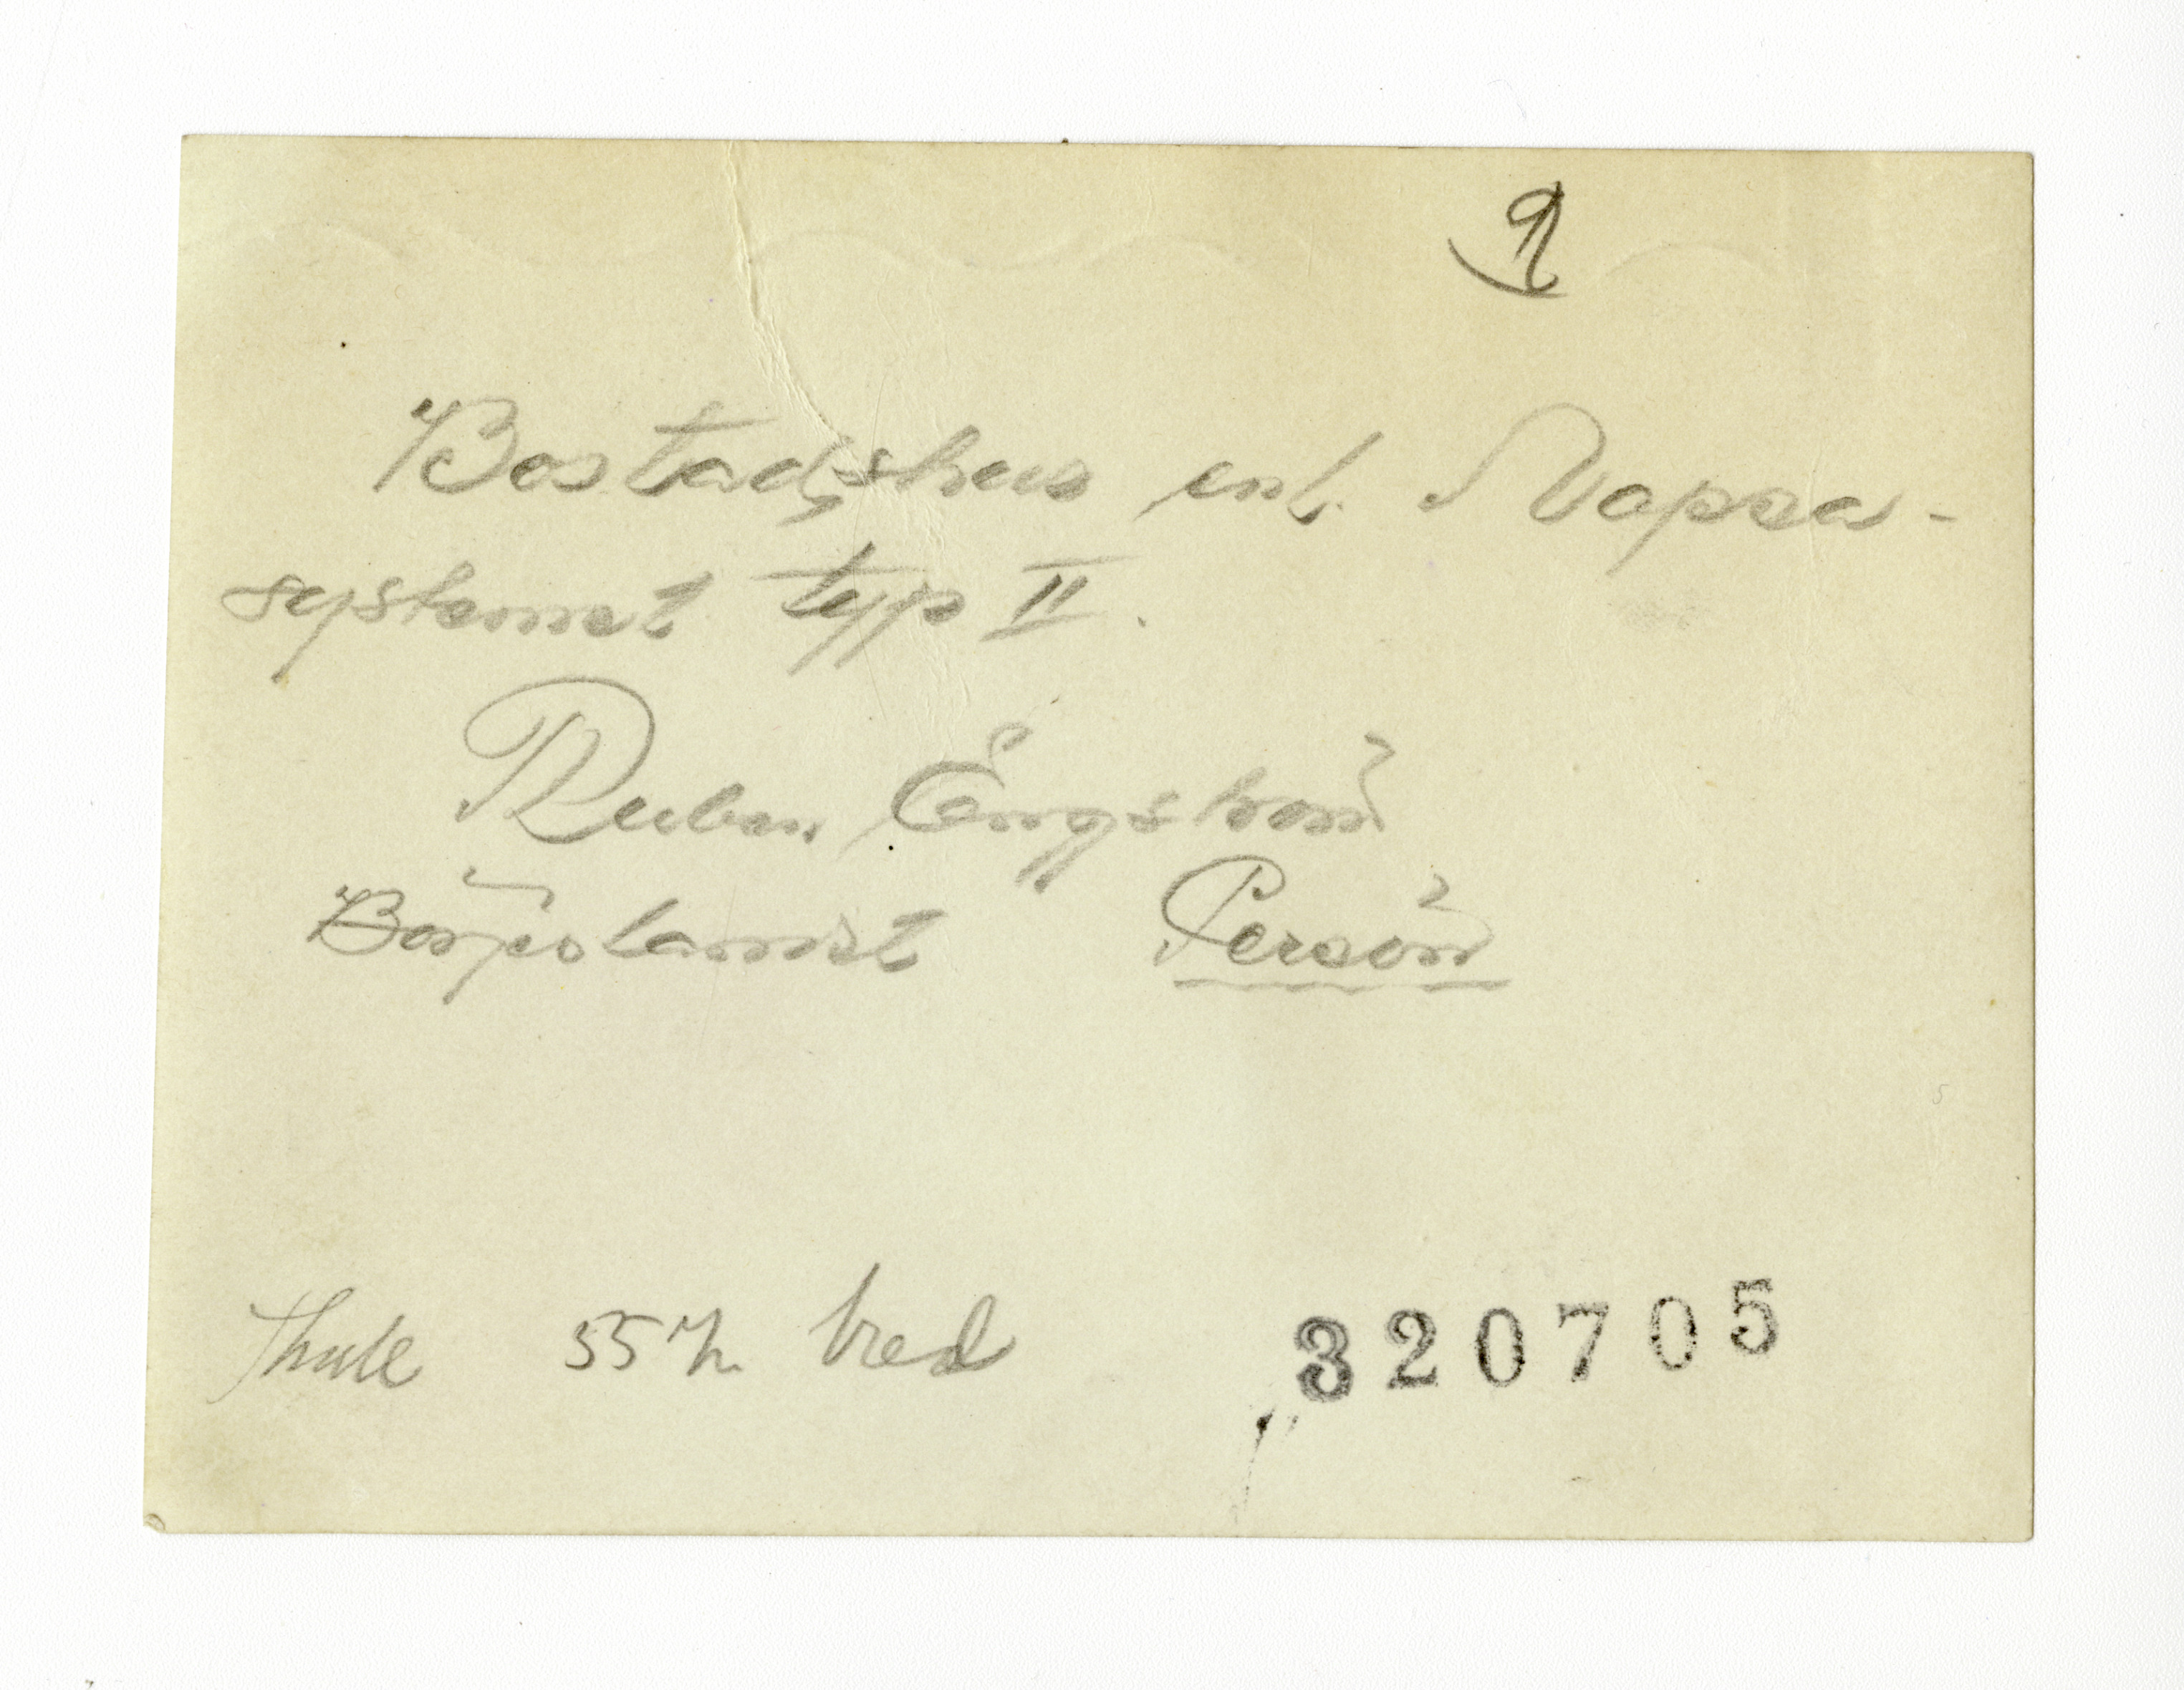 9
Bostadshus enl. Napra-
systemet typ II.
Ruben Engström
Persön
Thule 55 % bred
320705